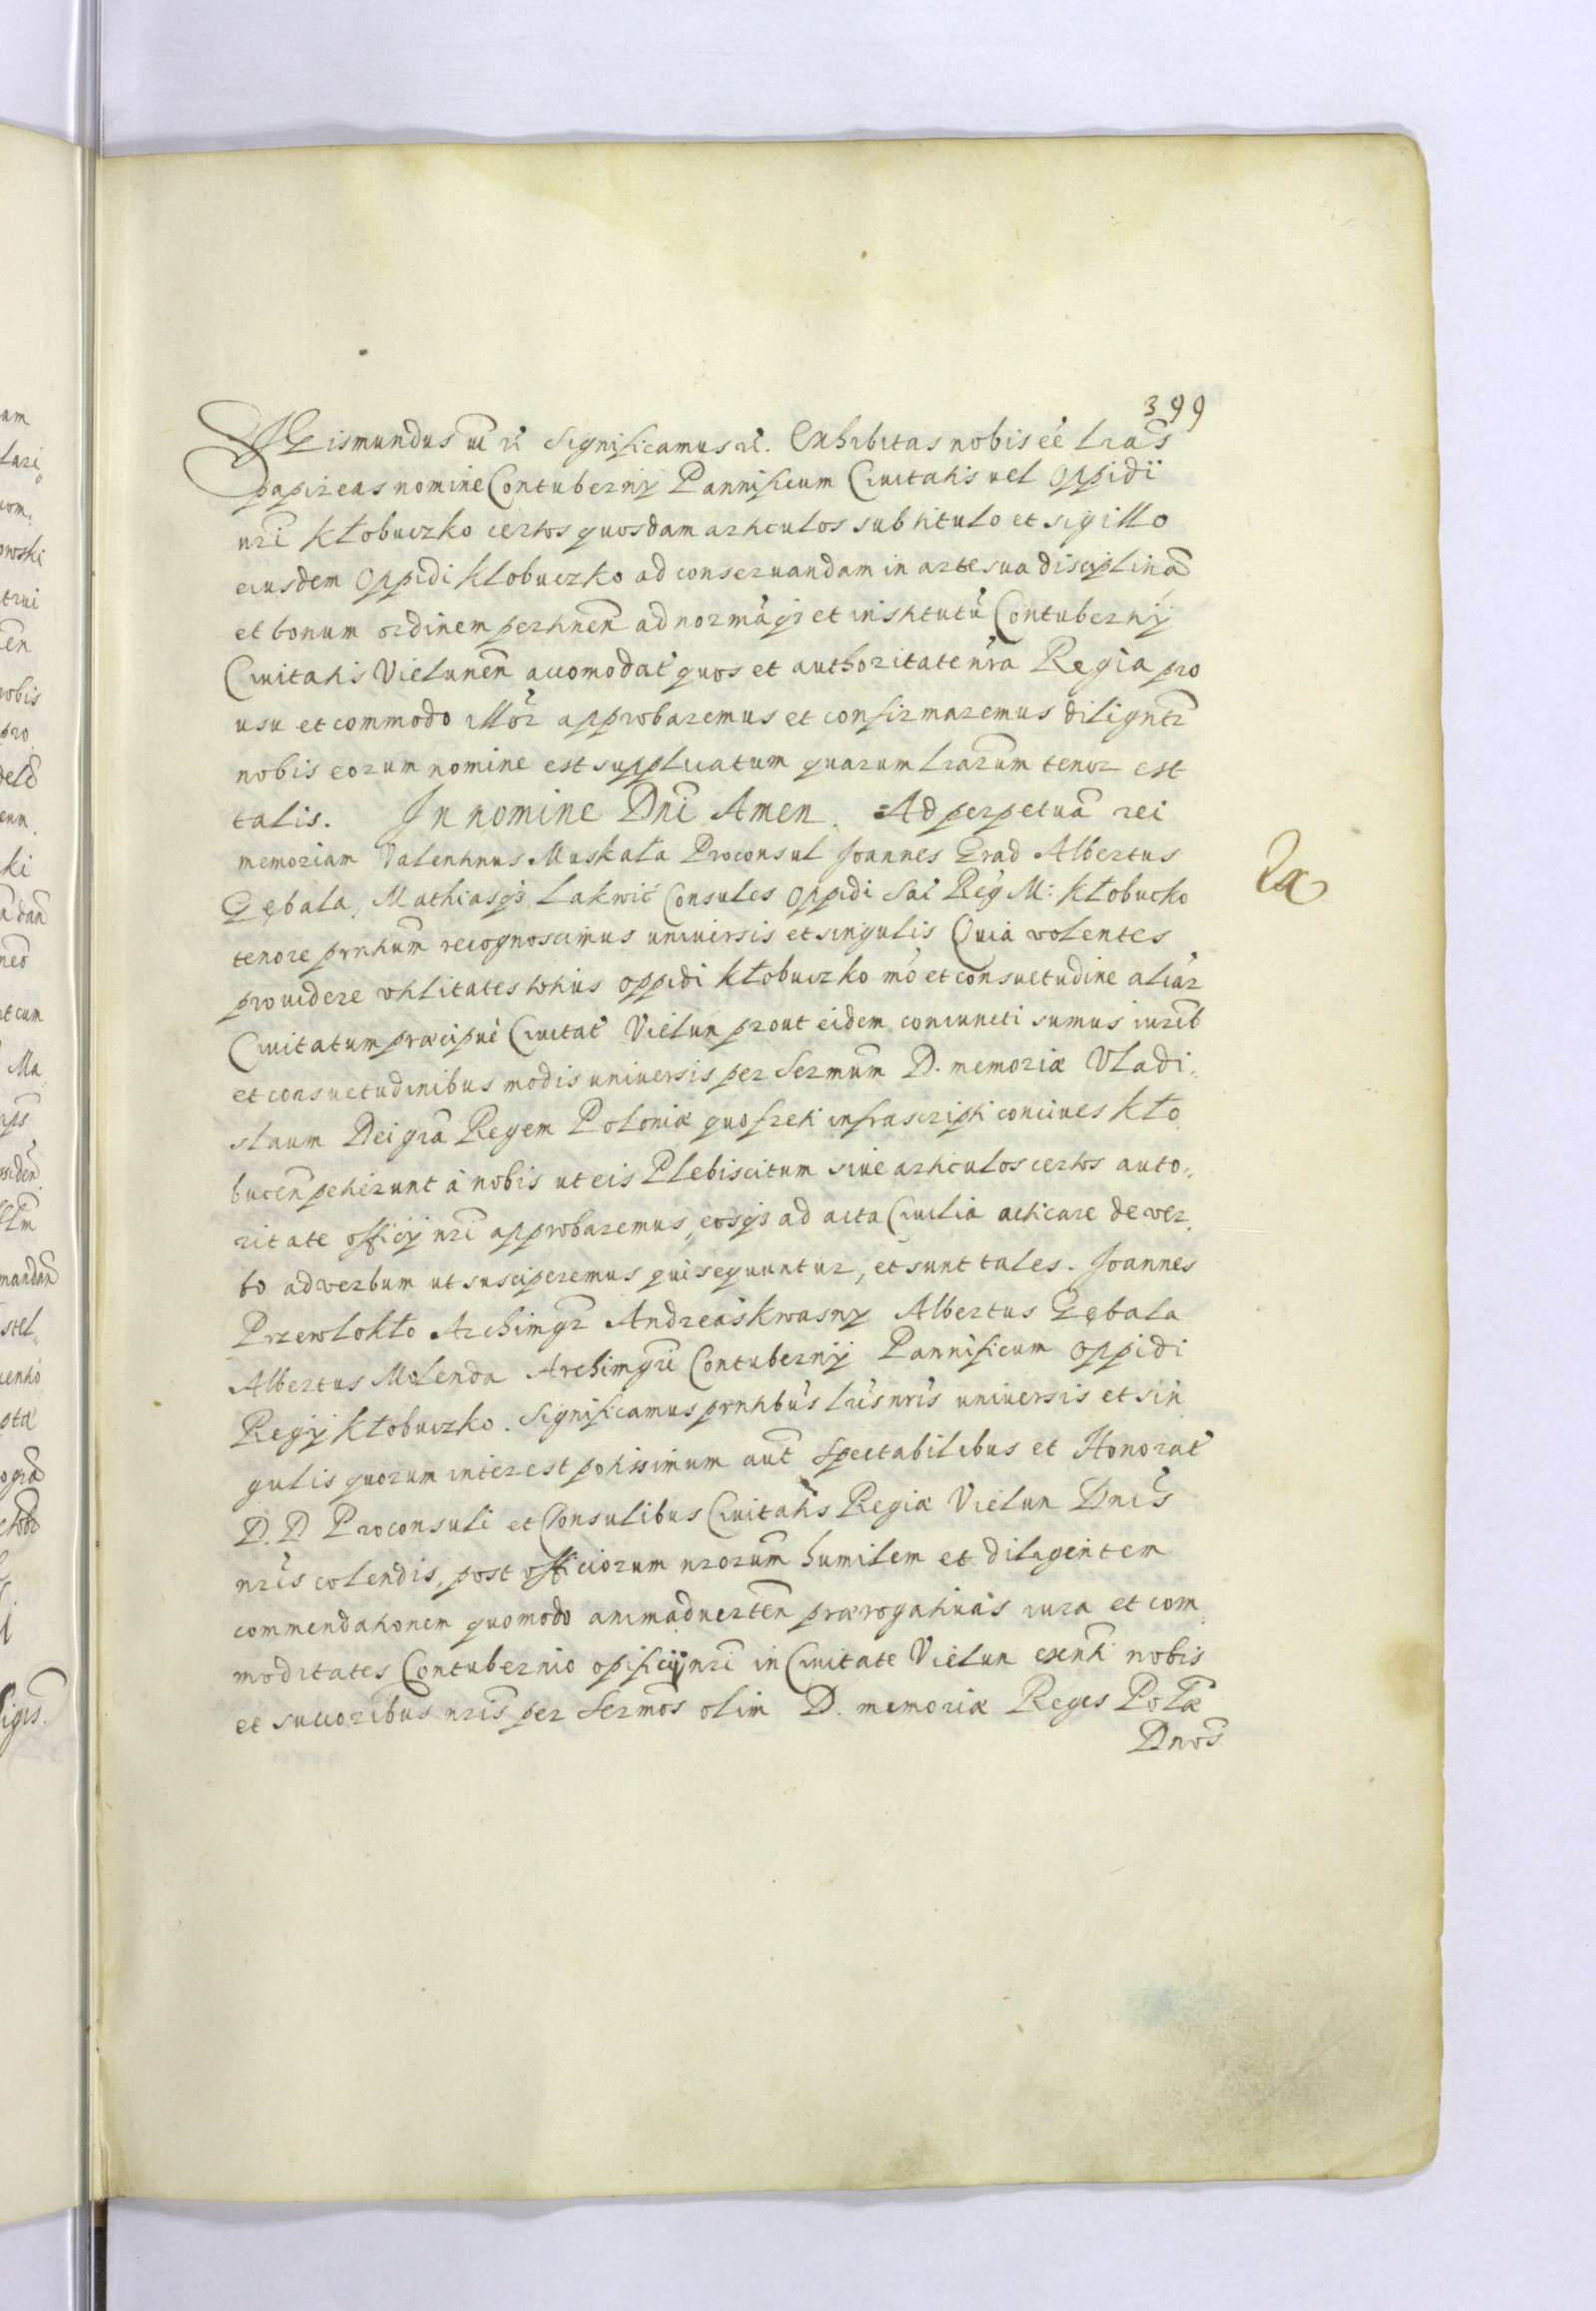 399
SGismundus ut rc Significamus rc. Exhibitas nobis eē Lrās
papireas nomine Contubernij Pannificum Civitatis vel Oppidi
nrī Kłobuczko certos quosdam articulos sub titulo et sigillo
eiusdem Oppidi Klobuczko ad conservandam in arte sua disciplinā
et bonum ordinem pertinen̄ ad normāqȝ et institutū Contubernij
Civitatis Vielunen̄ accomodat quos et authoritate nr̄a Regia pro
usu et commodo illor̄ approbaremus et confirmaremus diligntr̄
nobis eorum nomine est supplicatum quarum Lrar̄um tenor est
talis. In nomine Dnī Amen. Ad perpetuā rei
memoriam Valentinus Muskała Proconsul Joannes Grad Albertus
Gębala, Mathiasqȝ Lakwic Consules Oppidi Sac̄ Reg M: Kłobucko
tenore prn̄tium recognoscimus universis et singulis Quia volentes
providere utilitates totius oppidi Kłobuczko mō et consuetudine aliar̄
Civitatum præcipuè Civitat Vielun̄ prout eidem coniuncti sumus iurib
et consuetudinibus modis universis per Sermūm D. memoriæ Vladi„
slaum Dei grā Regem Poloniæ quo freti infrascripti concives Kło„
bucen̄ petierunt à nobis ut eis Plebiscitum sive articulos certos auto„
ritate officij nrī approbaremus, eosqȝ ad acta Civilia acticare de ver„
bo ad verbum ut susciperemus qui sequuntur, et sunt tales. Joannes
Przewlokło Archimgr̄ Andreas Kwasny Albertus Gębala
Albertus Molenda Archimgrī Contubernij Pannificum Oppidi
Regij Kłobuczko. Significamus prn̄tibus Lrīs nrīs universis et sin
gulis quorum interest potissimum aut̄ Spectabilibus et Honorat
D. D Proconsuli et Consulibus Civitatis Regiæ Vielun Dnīs
nrīs colendis, post officiorum nror̄um humilem et diligentem
commendationem quomodo animadverten̄ prærogativas iura et com„
moditates Contubernio opificij nrī in Civitate Vielun existen̄ nobis
et succoribus nrīs per Sermōs olim D. memoriæ Reges Pol̄æ
Dnōs